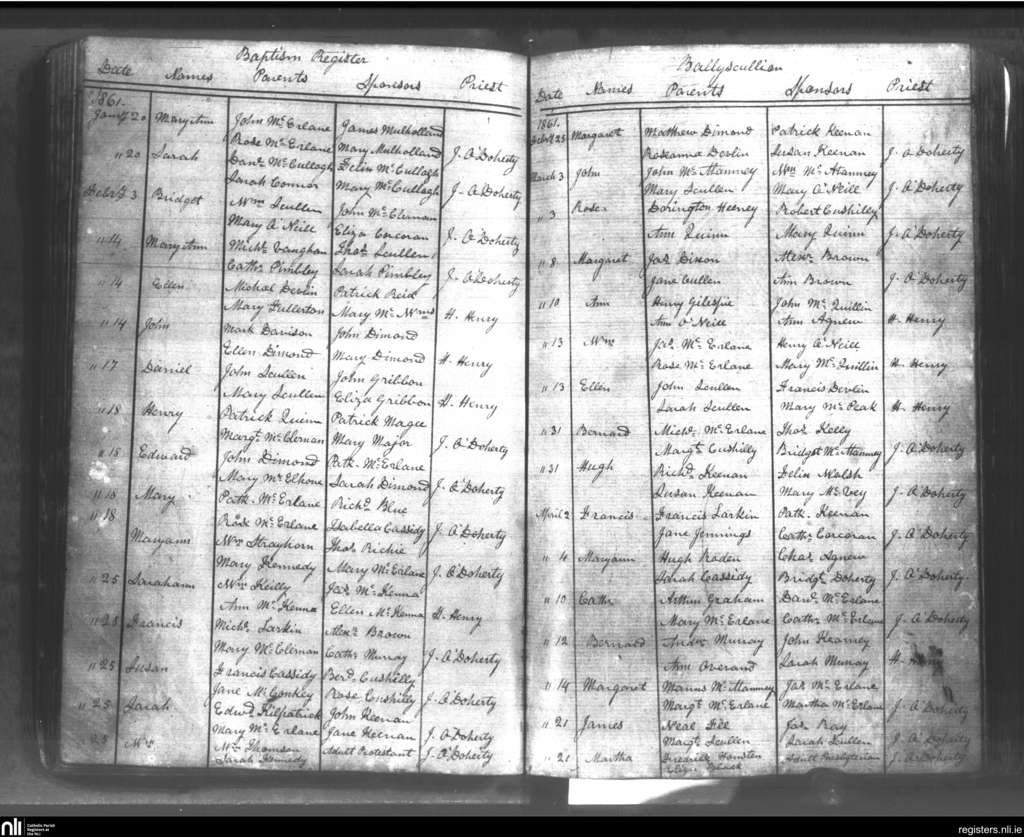 Baptism Register
Date Names Parents Sponsors Priest
1861.
Jany 20 Mary Ann John McErlane James Mulholland
Rose McErlane Mary Mulholland J. O'Doherty
" 20 Sarah Danl McCullagh Felix McCullagh
Sarah Connor Mary McCullagh J. O'Doherty
Febry 3 Bridget Wm Scullen John McClernan
Mary O'Neill Eliza Corcoran J. O'Doherty
" 14 Mary Ann Michl Vaughan Thos Scullen
Cathe Pimbley Sarah Pimbley J. O'Doherty
" 14 Ellen Michal Devlin Patrick Reid
Mary Fullerton Mary McWms H. Henry
" 14 John Mark Davison John Dimond
Ellen Dimond Mary Dimond H. Henry
" 17 Daniel John Scullen John Gribbon
Mary Scullen Eliza Gribbon H. Henry
" 18 Henry Patrick Quinn Patrick Magee
Margt McClernan Mary Major J. O'Doherty
" 18 Edward John Dimond Patk McErlane
Mary McElhone Sarah Dimond J. O'Doherty
" 18 Mary Patk McErlane Richd Blue
" 18 Rose McErlane Isabella Cassidy J. O'Doherty
Maryann Wm Strayhorn Thos Richie
Mary Kennedy Mary McErlane J. O'Doherty
" 25 Sarahann Wm Reilly Jas McKenna
Ann McKenna Ellen McKenna H. Henry
" 28 Francis Michl Larkin Alexr Brown
Mary McClernan Cathe Murray J. O'Doherty
" 25 Susan Francis Cassidy Berd Cushelly
Jane McConkey Rose Cushilly J. O'Doherty
" 25 Sarah Edwd Kilpatrick John Keenan
Mary McErlane Jane Keenan J. O'Doherty
Wm Wm Thomson Adult Protestant J. O'Doherty
Sarah Kennedy
Ballyscullion
Date Names Parents Sponsors Priest
1861.
Febry 25 Margaret Matthew Dimond Patrick Keenan
Roseanna Devlin Susan Keenan J. O'Doherty
March 3 John John McAtamney Wm McAtamney
Mary Scullen Mary O'Neill J. O'Doherty
" 3 Rose Dorington Heeney Robert Cushilly
Ann Quinn Mary Quinn J. O'Doherty
" 8 Margaret Jas Dixon Alexr Brown
Jane Cullen Ann Brown J. O'Doherty
" 10 Ann Henry Gilespie John McQuillin
Ann O'Neill Ann Agnew H. Henry
" 13 Wm Jas McErlane Henry O'Neill
Rose McErlane Mary McQuillin H. Henry
" 13 Ellen John Scullen Francis Devlin
Sarah Scullen Mary McPeak H. Henry
" 31 Bernard Michl McErlane Thos Kelly
Margt Cushilly Bridget McAtamney J. O'Doherty
" 31 Hugh Richd Keenan Felix Walsh
Susan Keenan Mary McVey J. O'Doherty
April 2 Francis Francis Larkin Patk Keenan
Jane Jennings Cathe Corcoran J. O'Doherty
" 4 Maryann Hugh Roden Chas Agnew
Sarah Cassidy Bridgt Doherty J. O'Doherty
" 10 Cathe Arthur Graham Danl McErlane
Mary McErlane Cathe McErlane J. O'Doherty
" 12 Bernard Andw Murray John Kearney
Ann Overand Sarah Murray H. Henry
" 14 Margaret Manus McAtamney Jas McErlane
Margt McErlane Martha McErlane J. O'Doherty
" 21 James Neal Lee Jas Ray
Margt Scullen Sarah Scullen J. O'Doherty
" 21 Martha Fredrick Houston Adult Presbyterian J. O'Doherty
Eliza Black
nli
Catholic Parish
Registers at
the NLI
registers.nli.ie